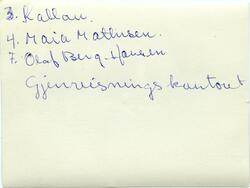 3. Kallau.
4. Maia Mathisen.
7. Olaf Berg-Hansen
Gjenreisningskontoret